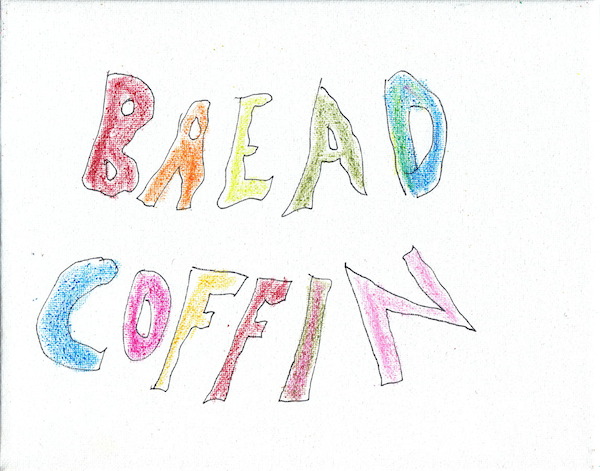 BREAD
COFFIN